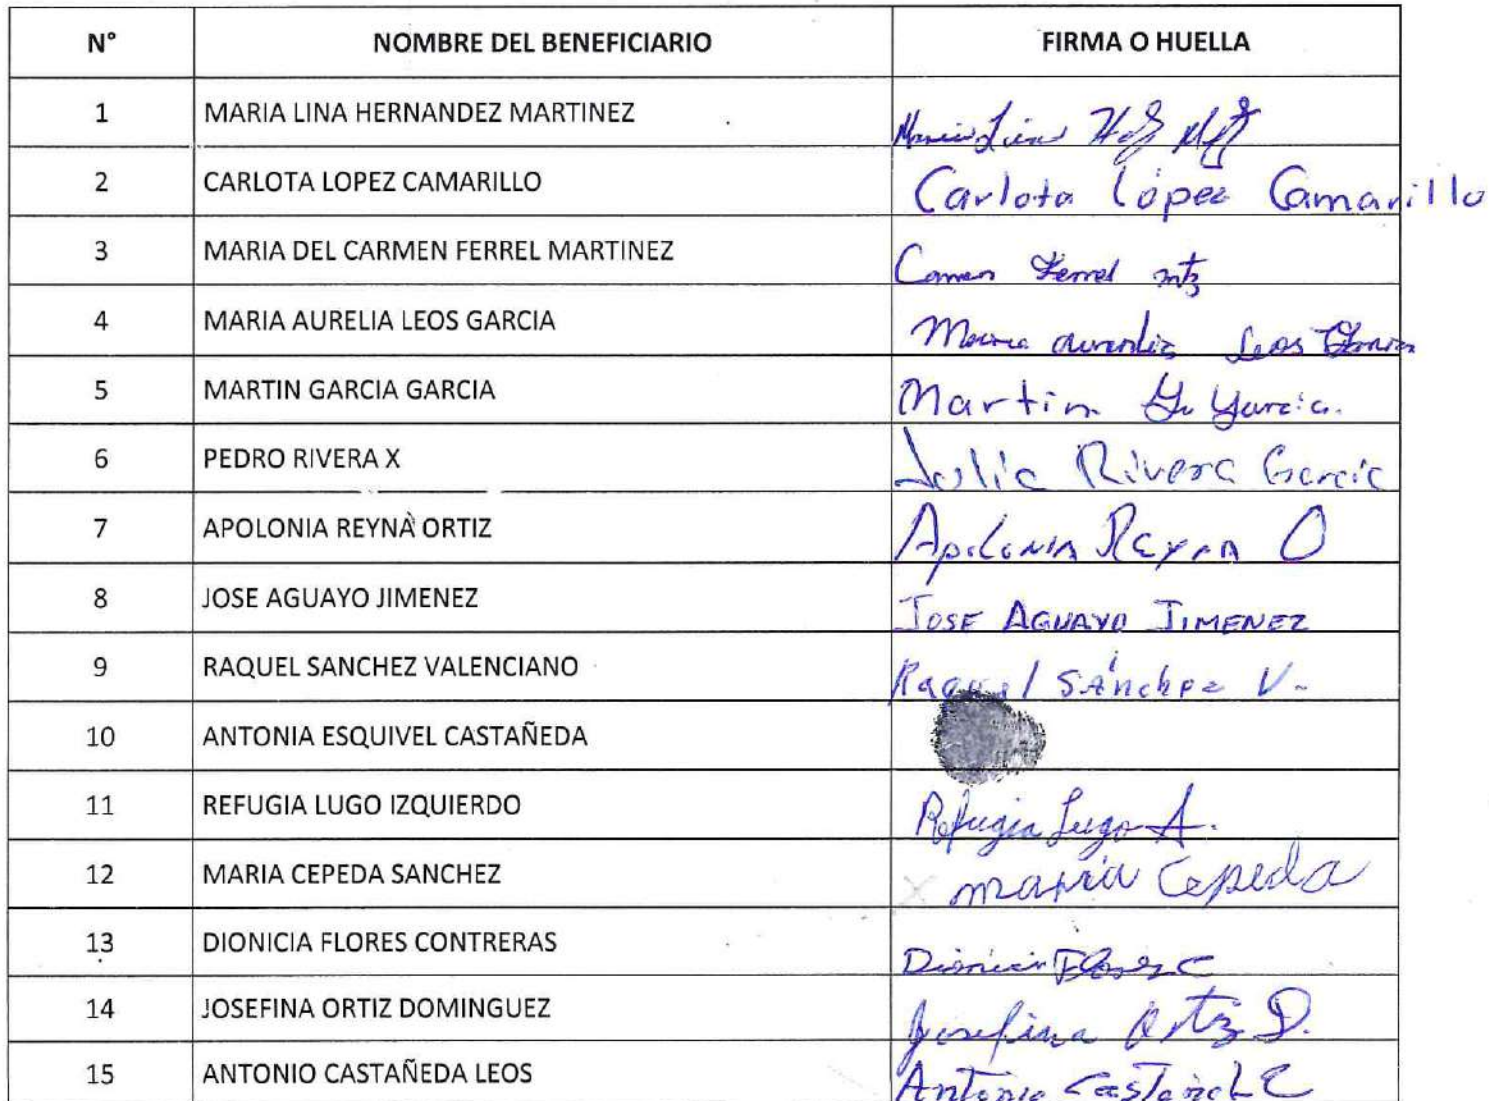 N° NOMBRE DEL BENEFICIARIO FIRMA O HUELLA
1 MARIA LINA HERNANDEZ MARTINEZ Maria Lina Hdz Mtz
2 CARLOTA LOPEZ CAMARILLO Carlota López Camarillo
3 MARIA DEL CARMEN FERREL MARTINEZ Carmen Ferrel mtz
4 MARIA AURELIA LEOS GARCIA Maria Leos Garcia
5 MARTIN GARCIA GARCIA Martin G. Garcia.
6 PEDRO RIVERA X Julia Rivera Garcia
7 APOLONIA REYNA ORTIZ Apolonia Reyna O
8 JOSE AGUAYO JIMENEZ JOSE AGUAYO JIMENEZ
9 RAQUEL SANCHEZ VALENCIANO Raquel Sánchez V.
10 ANTONIA ESQUIVEL CASTAÑEDA
11 REFUGIA LUGO IZQUIERDO Refugia Lugo
12 MARIA CEPEDA SANCHEZ maria Cepeda
13 DIONICIA FLORES CONTRERAS Dionicia Flores C
14 JOSEFINA ORTIZ DOMINGUEZ Josefina Ortiz D.
15 ANTONIO CASTAÑEDA LEOS Antonio